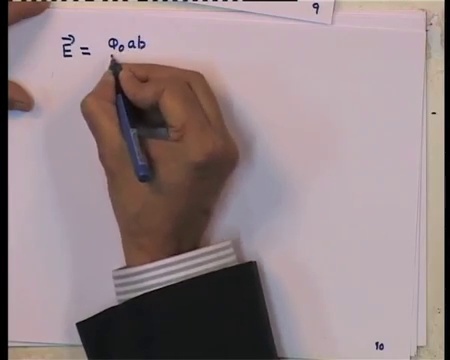 9
E⃗ = Φ₀ab
10